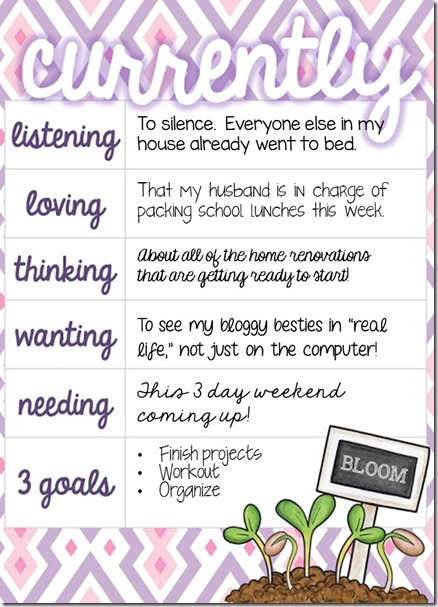 currently
listening
To silence. Everyone else in my
house already went to bed.
loving
That my husband is in charge of
packing school lunches this week.
thinking
About all of the home renovations
that are getting ready to start!
wanting
To see my bloggy besties in "real
life," not just on the computer!
needing
This 3 day weekend
coming up!
3 goals
• Finish projects
• Workout
• Organize
BLOOM